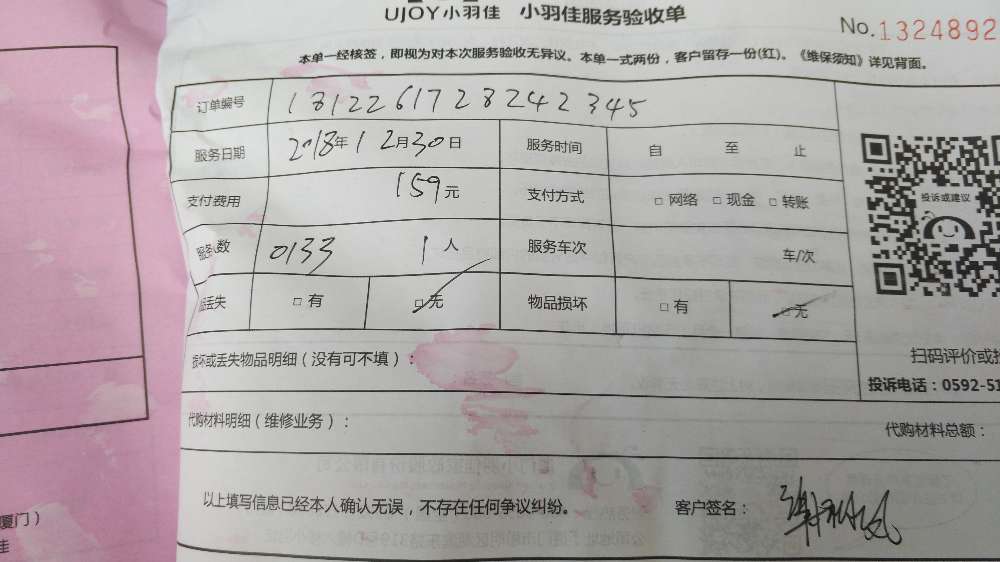 UJOY小羽佳 小羽佳服务验收单
No.1324892
本单一经核签，即视为对本次服务验收无异议。本单一式两份，客户留存一份(红)。《维保须知》详见背面。
订单编号 1812261728242345
服务日期 2018年12月30日 服务时间 自 至 止
支付费用 159元 支付方式 □ 网络 □ 现金 □ 转账
服务 数 0133 1人 服务车次 车/次
丢失 □ 有 □ 无 物品损坏 □ 有 □ 无
投诉或建议
损坏或丢失物品明细（没有可不填）：
扫码评价或
投诉电话：0592-51
代购材料明细（维修业务）：
代购材料总额：
以上填写信息已经本人确认无误，不存在任何争议纠纷。 客户签名：
厦门）
佳